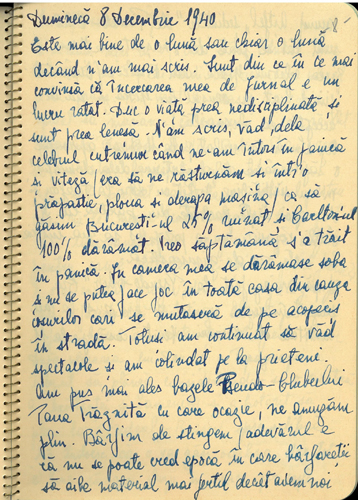 Duminecă 8 Decembrie 1940
Este mai bine de o lună sau chiar o lună
decând n'am mai scris. Sunt din ce în ce mai
convinsă că încercarea mea de Jurnal e un
lucru ratat. Duc o viață prea nedisciplinată și
sunt prea lenesa. N'am scris, văd, dela
celebrul cutremur când ne-am întors în panică
și viteză / era să ne răsturnăm și într'o
prăpastie, ploua și derapa mașina / ca să
găsim Bucureștiul 25% ruinat și Carltonul
100% dărâmat. Vreo săptămână s'a trăit
în panică. În camera mea se dărâmase soba
și nu se putea face foc în toată casa din cauza
coșurilor cari se mutaseră de pe acoperiș
în stradă. Totuși am continuat să văd
spectacole și am colindat pe la prieteni.
Am pus mai ales bazele Pseudo-Clubului
Tana Trăgnită cu care ocazie, ne amuzăm
plin. Bârfim de stingem / adevărul e
că nu se poate vred epocă în care bârfaretii
să aibe material mai fertil decât avem noi,